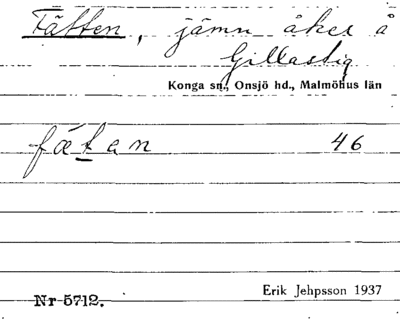 Fätten, jämn åker å
Gillastig
Konga sn., Onsjö hd., Malmöhus län
fætan 46
Erik Jehpsson 1937
Nr 5712.